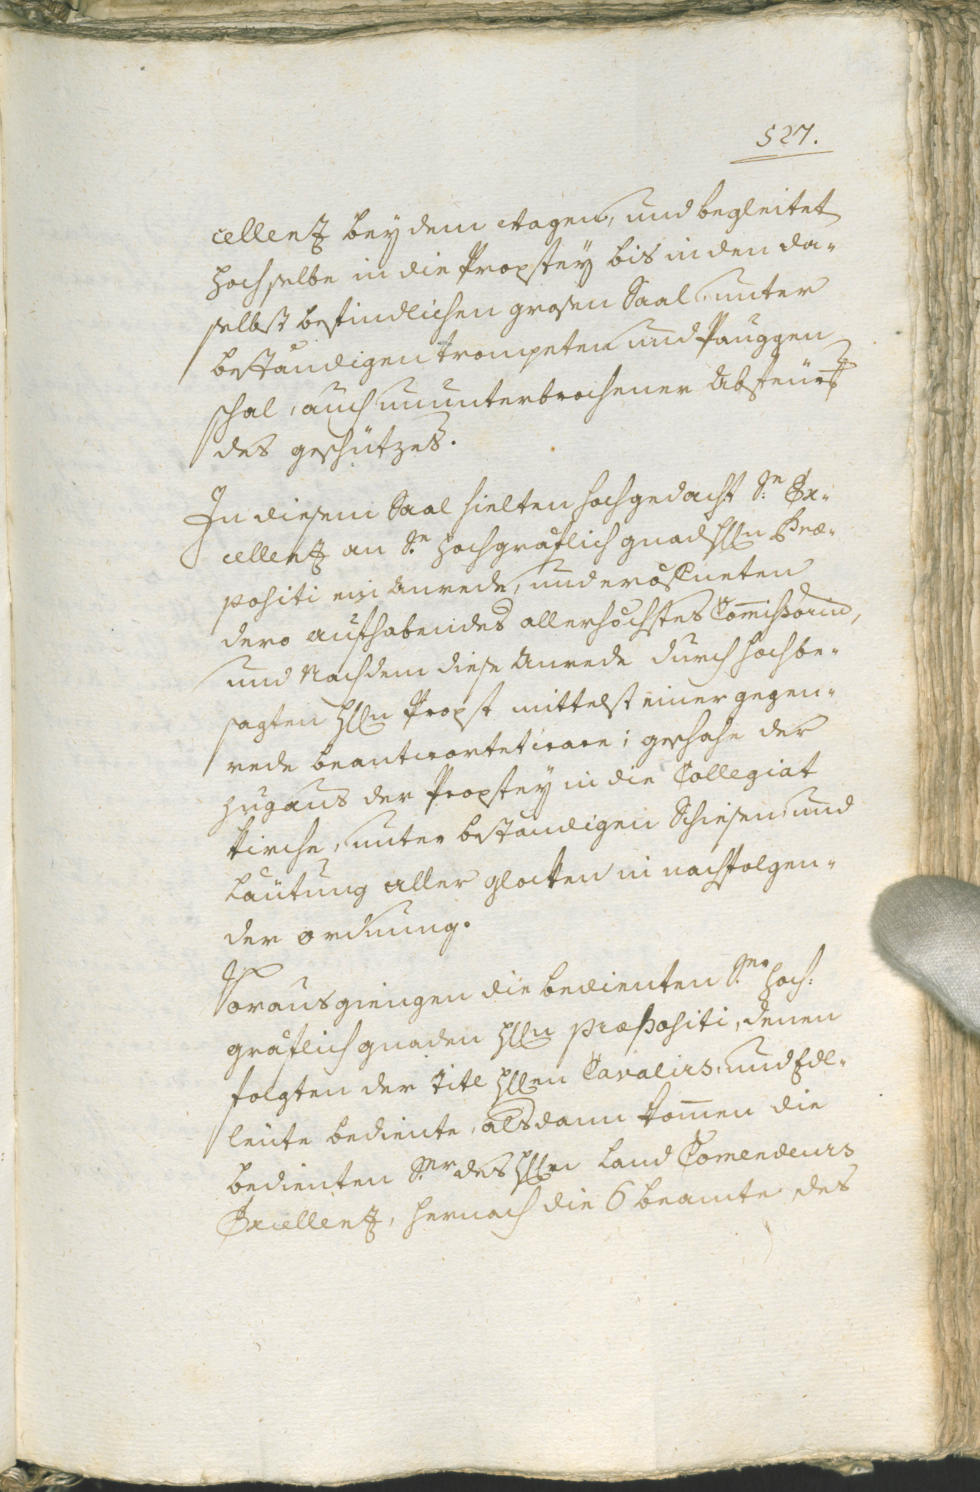 527.
cellentz bey dem Wagen, und begleitet
Hochselbe in die Propstey bis in den da-
selbst befindlichen grosen Saal unter
beständigen trompeten und Pauggen
schal, auch ununterbrochener Absteurs
des geschützes.
In diesem Saal hielten hochgedacht S:e Ex-
cellentz an S:r Hochgräflich gnad Hhn Præ-
positi ein Anrede, und eröfneten
dero aufhabendes allerhöchstes Com̅issoriu̅,
und Nachdem diese Anrede durch hochbe-
sagten Hhn Propst mittelst einer gegen-
rede beantwortet ware; geschahe der
Zug aus der Propstey in die Collegiat
kirche, unter beständigen Schiesen, und
Läutung aller glocken in nachfolgen-
der ordnung.
Voraus giengen die bedienten S:er Hoch-
gräflich gnaden Hhn Præpositi, denen
folgten der Titl Hhen Cavaliers, und Edl-
leüte bediente, alsdann kom̅en die
bedienten S:er des Hhn Land Com̅endeurs
Excellentz, hernach die 6 beamte des